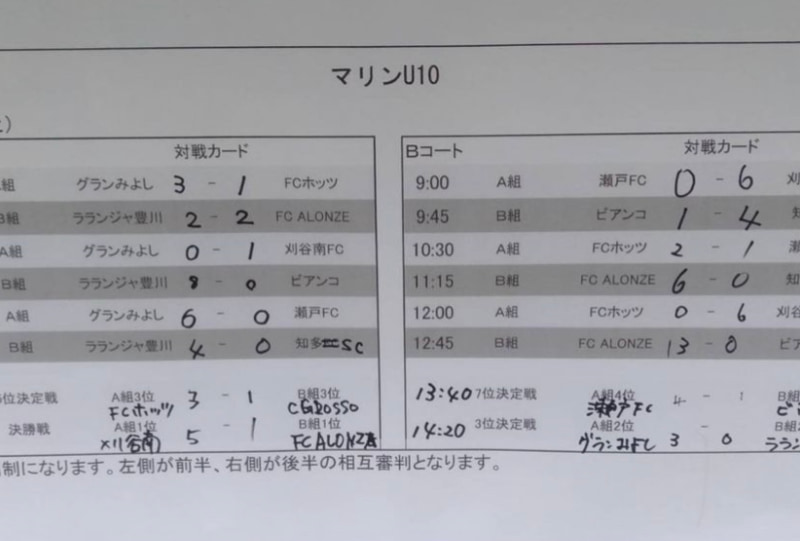 マリンU10
対戦カード
グランみよし 3 - 1 FCホッツ
B組 ラランジャ豊川 2 - 2 FC ALONZE
A組 グランみよし 0 - 1 刈谷南FC
B組 ラランジャ豊川 8 - 0 ビアンコ
A組 グランみよし 6 - 0 瀬戸FC
B組 ラランジャ豊川 4 - 0 知多SC
位決定戦 A組3位 3 - 1 B組3位
FCホッツ CGROSSO
決勝戦 A組1位 5 - 1 B組1位
刈谷南 FC ALONZA
対戦カード
Bコート
9:00 A組 瀬戸FC 0 - 6 刈
9:45 B組 ビアンコ 1 - 4 知
10:30 A組 FCホッツ 2 - 1 瀬
11:15 B組 FC ALONZE 6 - 0 知
12:00 A組 FCホッツ 0 - 6 刈谷
12:45 B組 FC ALONZE 13 - 0 ビア
13:40 7位決定戦 A組4位 4 - 1 B組
瀬戸FC ビ
14:20 3位決定戦 A組2位 3 - 0 B組
グランみよし ララン
制になります。左側が前半、右側が後半の相互審判となります。